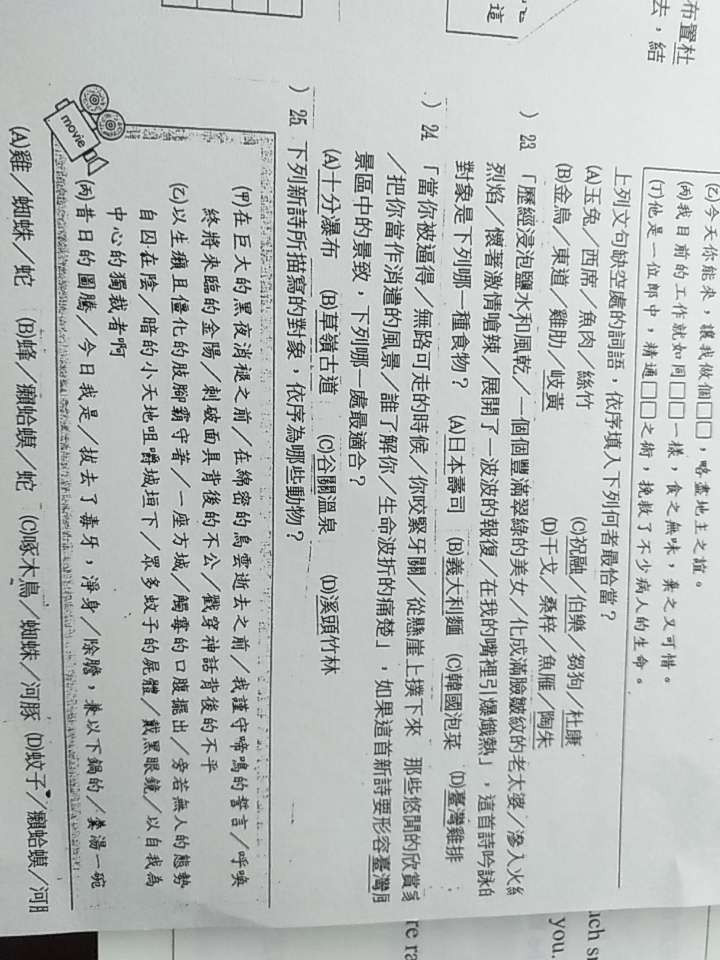 布置杜
去，結
這
(乙)今天你能來，讓我做個□□，略盡地主之誼。
(丙)我目前的工作就如同□□一樣，食之無味，棄之又可惜。
(丁)他是一位郎中，精通□□之術，挽救了不少病人的生命。
上列文句缺空處的詞語，依序填入下列何者最恰當？
(A)玉兔／西席／魚肉／絲竹 (C)祝融／伯樂／芻狗／杜康
(B)金烏／東道／雞肋／岐黃 (D)干戈／桑梓／魚雁／陶朱
) 23. 「歷經浸泡鹽水和風乾／一個個豐滿翠綠的美女／化成滿臉皺紋的老太婆／滲入火紅
烈焰／懷著激情嗆辣／展開了一波波的報復／在我的嘴裡引爆熾熱」，這首詩吟詠的
對象是下列哪一種食物？ (A)日本壽司 (B)義大利麵 (C)韓國泡菜 (D)臺灣雞排
) 24. 「當你被逼得／無路可走的時候／你咬緊牙關／從懸崖上撲下來 那些悠閒的欣賞家
／把你當作消遣的風景／誰了解你／生命波折的痛楚」，如果這首新詩要形容臺灣風
景區中的景致，下列哪一處最適合？
(A)十分瀑布 (B)草嶺古道 (C)谷關溫泉 (D)溪頭竹林
) 25. 下列新詩所描寫的對象，依序為哪些動物？
(甲)在巨大的黑夜消褪之前／在綿密的烏雲逝去之前／我謹守啼鳴的誓言／呼喚
終將來臨的金陽／刺破面具背後的不公／戳穿神話背後的不平
(乙)以生癩且僵化的肢腳霸守著／一座方城／觸霉的口腹擺出／旁若無人的態勢
自囚在陰／暗的小天地咀嚼城垣下／眾多蚊子的屍體／戴黑眼鏡／以自我為
中心的獨裁者啊
(丙)昔日的圖騰／今日我是／拔去了毒牙，淨身／除膽，兼以下鍋的／羹湯一碗
movie
(A)雞／蜘蛛／蛇 (B)蜂／癩蛤蟆／蛇 (C)啄木鳥／蜘蛛／河豚 (D)蚊子／癩蛤蟆／河
you.